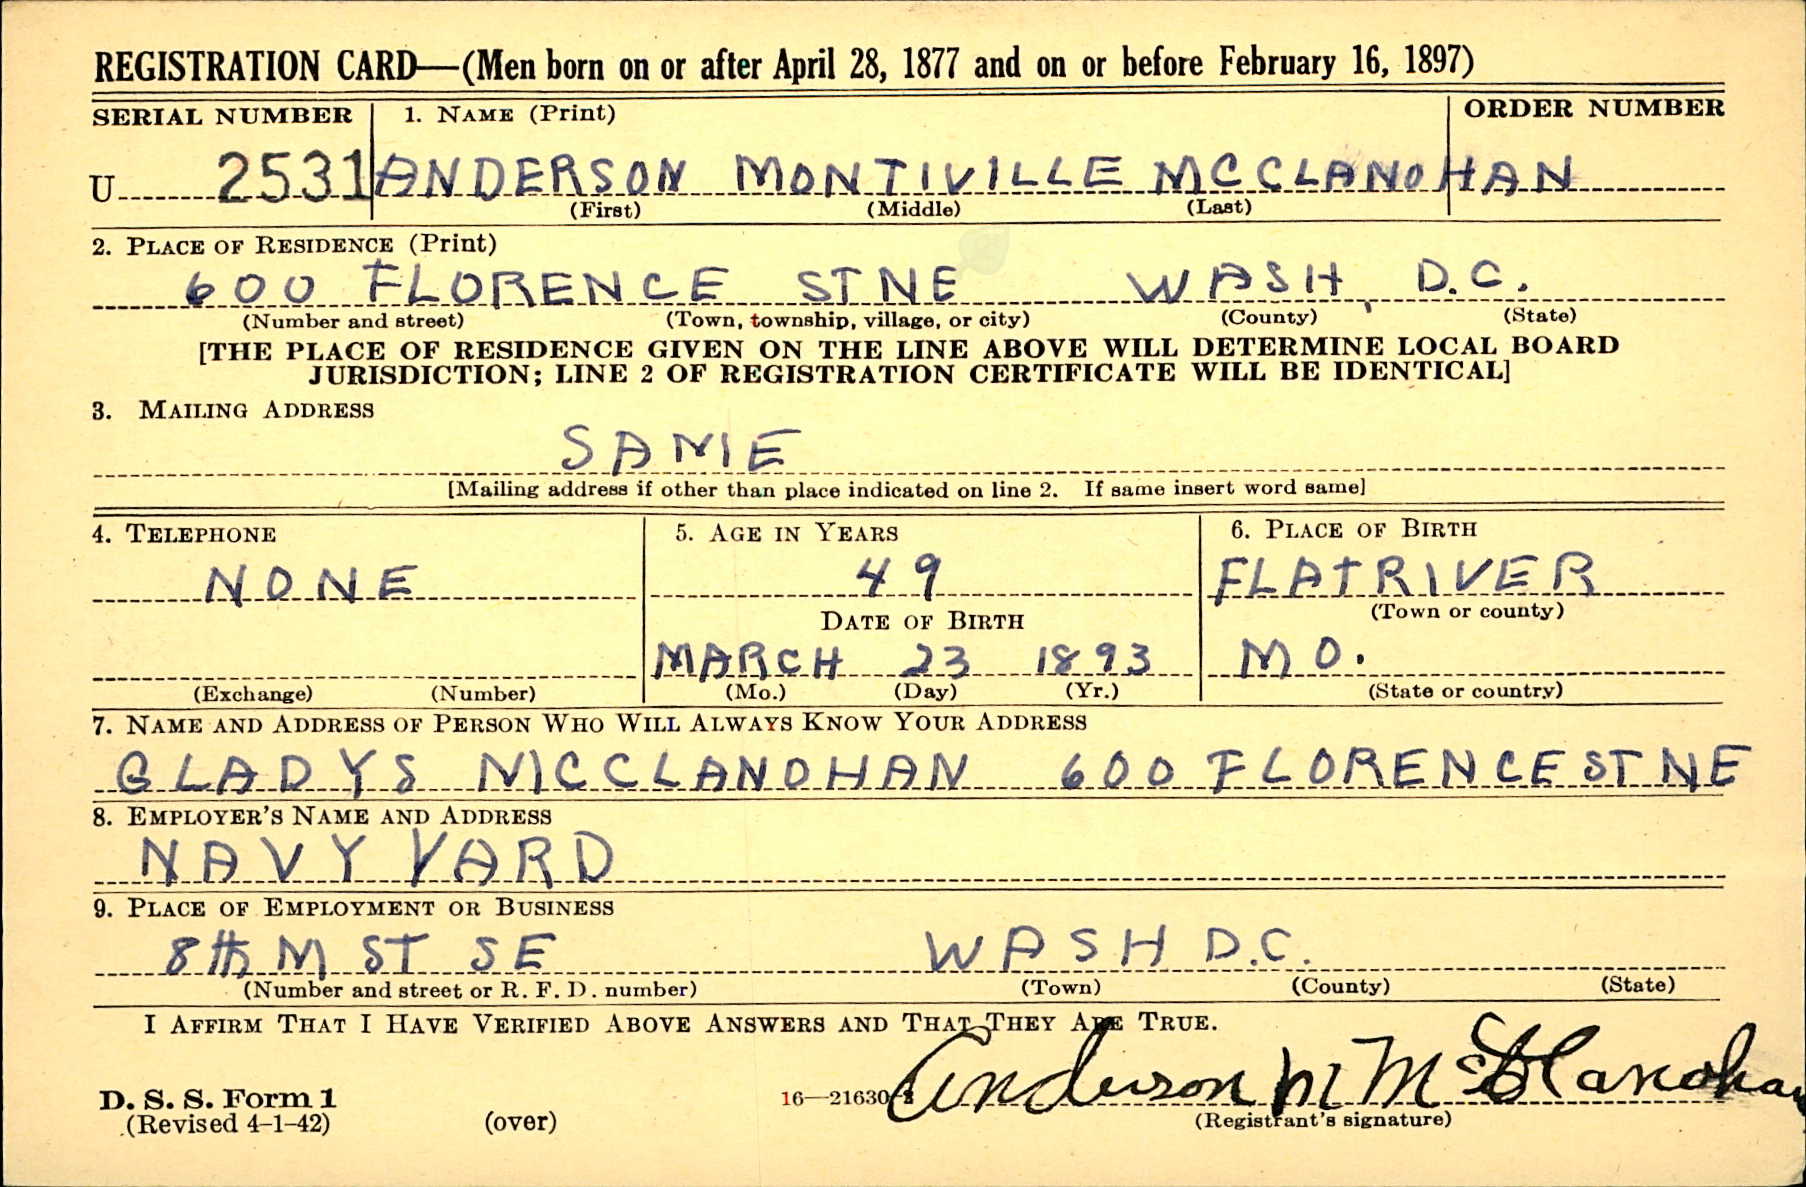 REGISTRATION CARD—(Men born on or after April 28, 1877 and on or before February 16, 1897)
SERIAL NUMBER 1. NAME (Print) ORDER NUMBER
U 2531 ANDERSON MONTIVILLE MCCLANOHAN
(First) (Middle) (Last)
2. PLACE OF RESIDENCE (Print)
600 FLORENCE ST NE WASH, D.C.
(Number and street) (Town, township, village, or city) (County) (State)
[THE PLACE OF RESIDENCE GIVEN ON THE LINE ABOVE WILL DETERMINE LOCAL BOARD
JURISDICTION; LINE 2 OF REGISTRATION CERTIFICATE WILL BE IDENTICAL]
3. MAILING ADDRESS
SAME
[Mailing address if other than place indicated on line 2. If same insert word same]
4. TELEPHONE 5. AGE IN YEARS 6. PLACE OF BIRTH
NONE 49 FLATRIVER
DATE OF BIRTH (Town or county)
MARCH 23 1893 MO.
(Exchange) (Number) (Mo.) (Day) (Yr.) (State or country)
7. NAME AND ADDRESS OF PERSON WHO WILL ALWAYS KNOW YOUR ADDRESS
GLADYS MCCLANOHAN 600 FLORENCE ST NE
8. EMPLOYER'S NAME AND ADDRESS
NAVY YARD
9. PLACE OF EMPLOYMENT OR BUSINESS
8th M ST SE WASH D.C.
(Number and street or R. F. D. number) (Town) (County) (State)
I AFFIRM THAT I HAVE VERIFIED ABOVE ANSWERS AND THAT THEY ARE TRUE.
D. S. S. Form 1 16—21630-2 Anderson M McClanohan
(Revised 4-1-42) (over) (Registrant's signature)